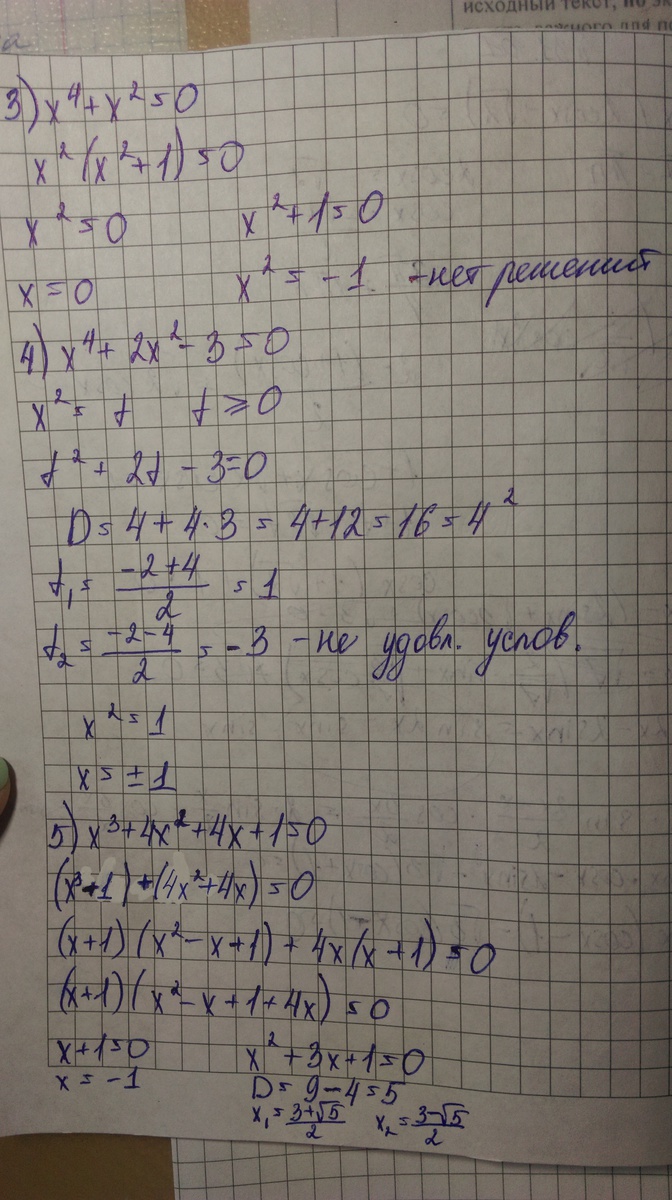 исходный текст, но эк
3) x⁴ + x² = 0
x² (x² + 1) = 0
x² = 0 x² + 1 = 0
x = 0 x² = -1 - нет решений
4) x⁴ + 2x² - 3 = 0
x² = t t ≥ 0
t² + 2t - 3 = 0
D = 4 + 4·3 = 4 + 12 = 16 = 4²
t₁ = (-2+4)/2 = 1
t₂ = (-2-4)/2 = -3 - не удовл. услов.
x² = 1
x = ±1
5) x³ + 4x² + 4x + 1 = 0
(x³ + 1) + (4x² + 4x) = 0
(x+1) (x² - x + 1) + 4x (x + 1) = 0
(x+1) (x² - x + 1 + 4x) = 0
x + 1 = 0 x² + 3x + 1 = 0
x = -1 D = 9 - 4 = 5
x₁ = (3+√5)/2 x₂ = (3-√5)/2